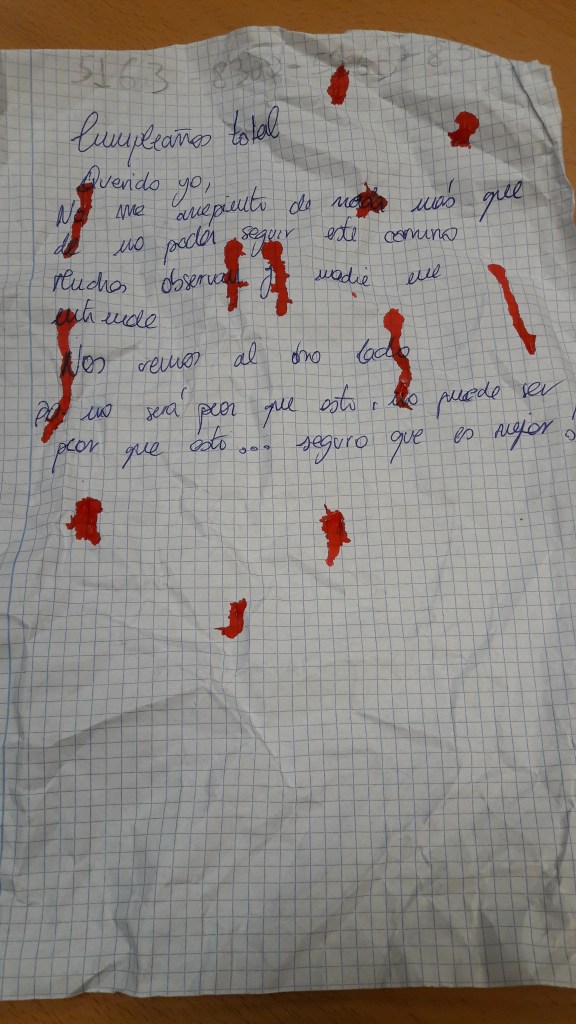 5163 - 8302 -
Cumpleaños total
Querido yo,
No me arrepiento de nada más que
de no poder seguir este camino
Muchos observan y nadie me
entiende
Nos vemos al otro lado
no será peor que esto. No puede ser
peor que esto... seguro que es mejor